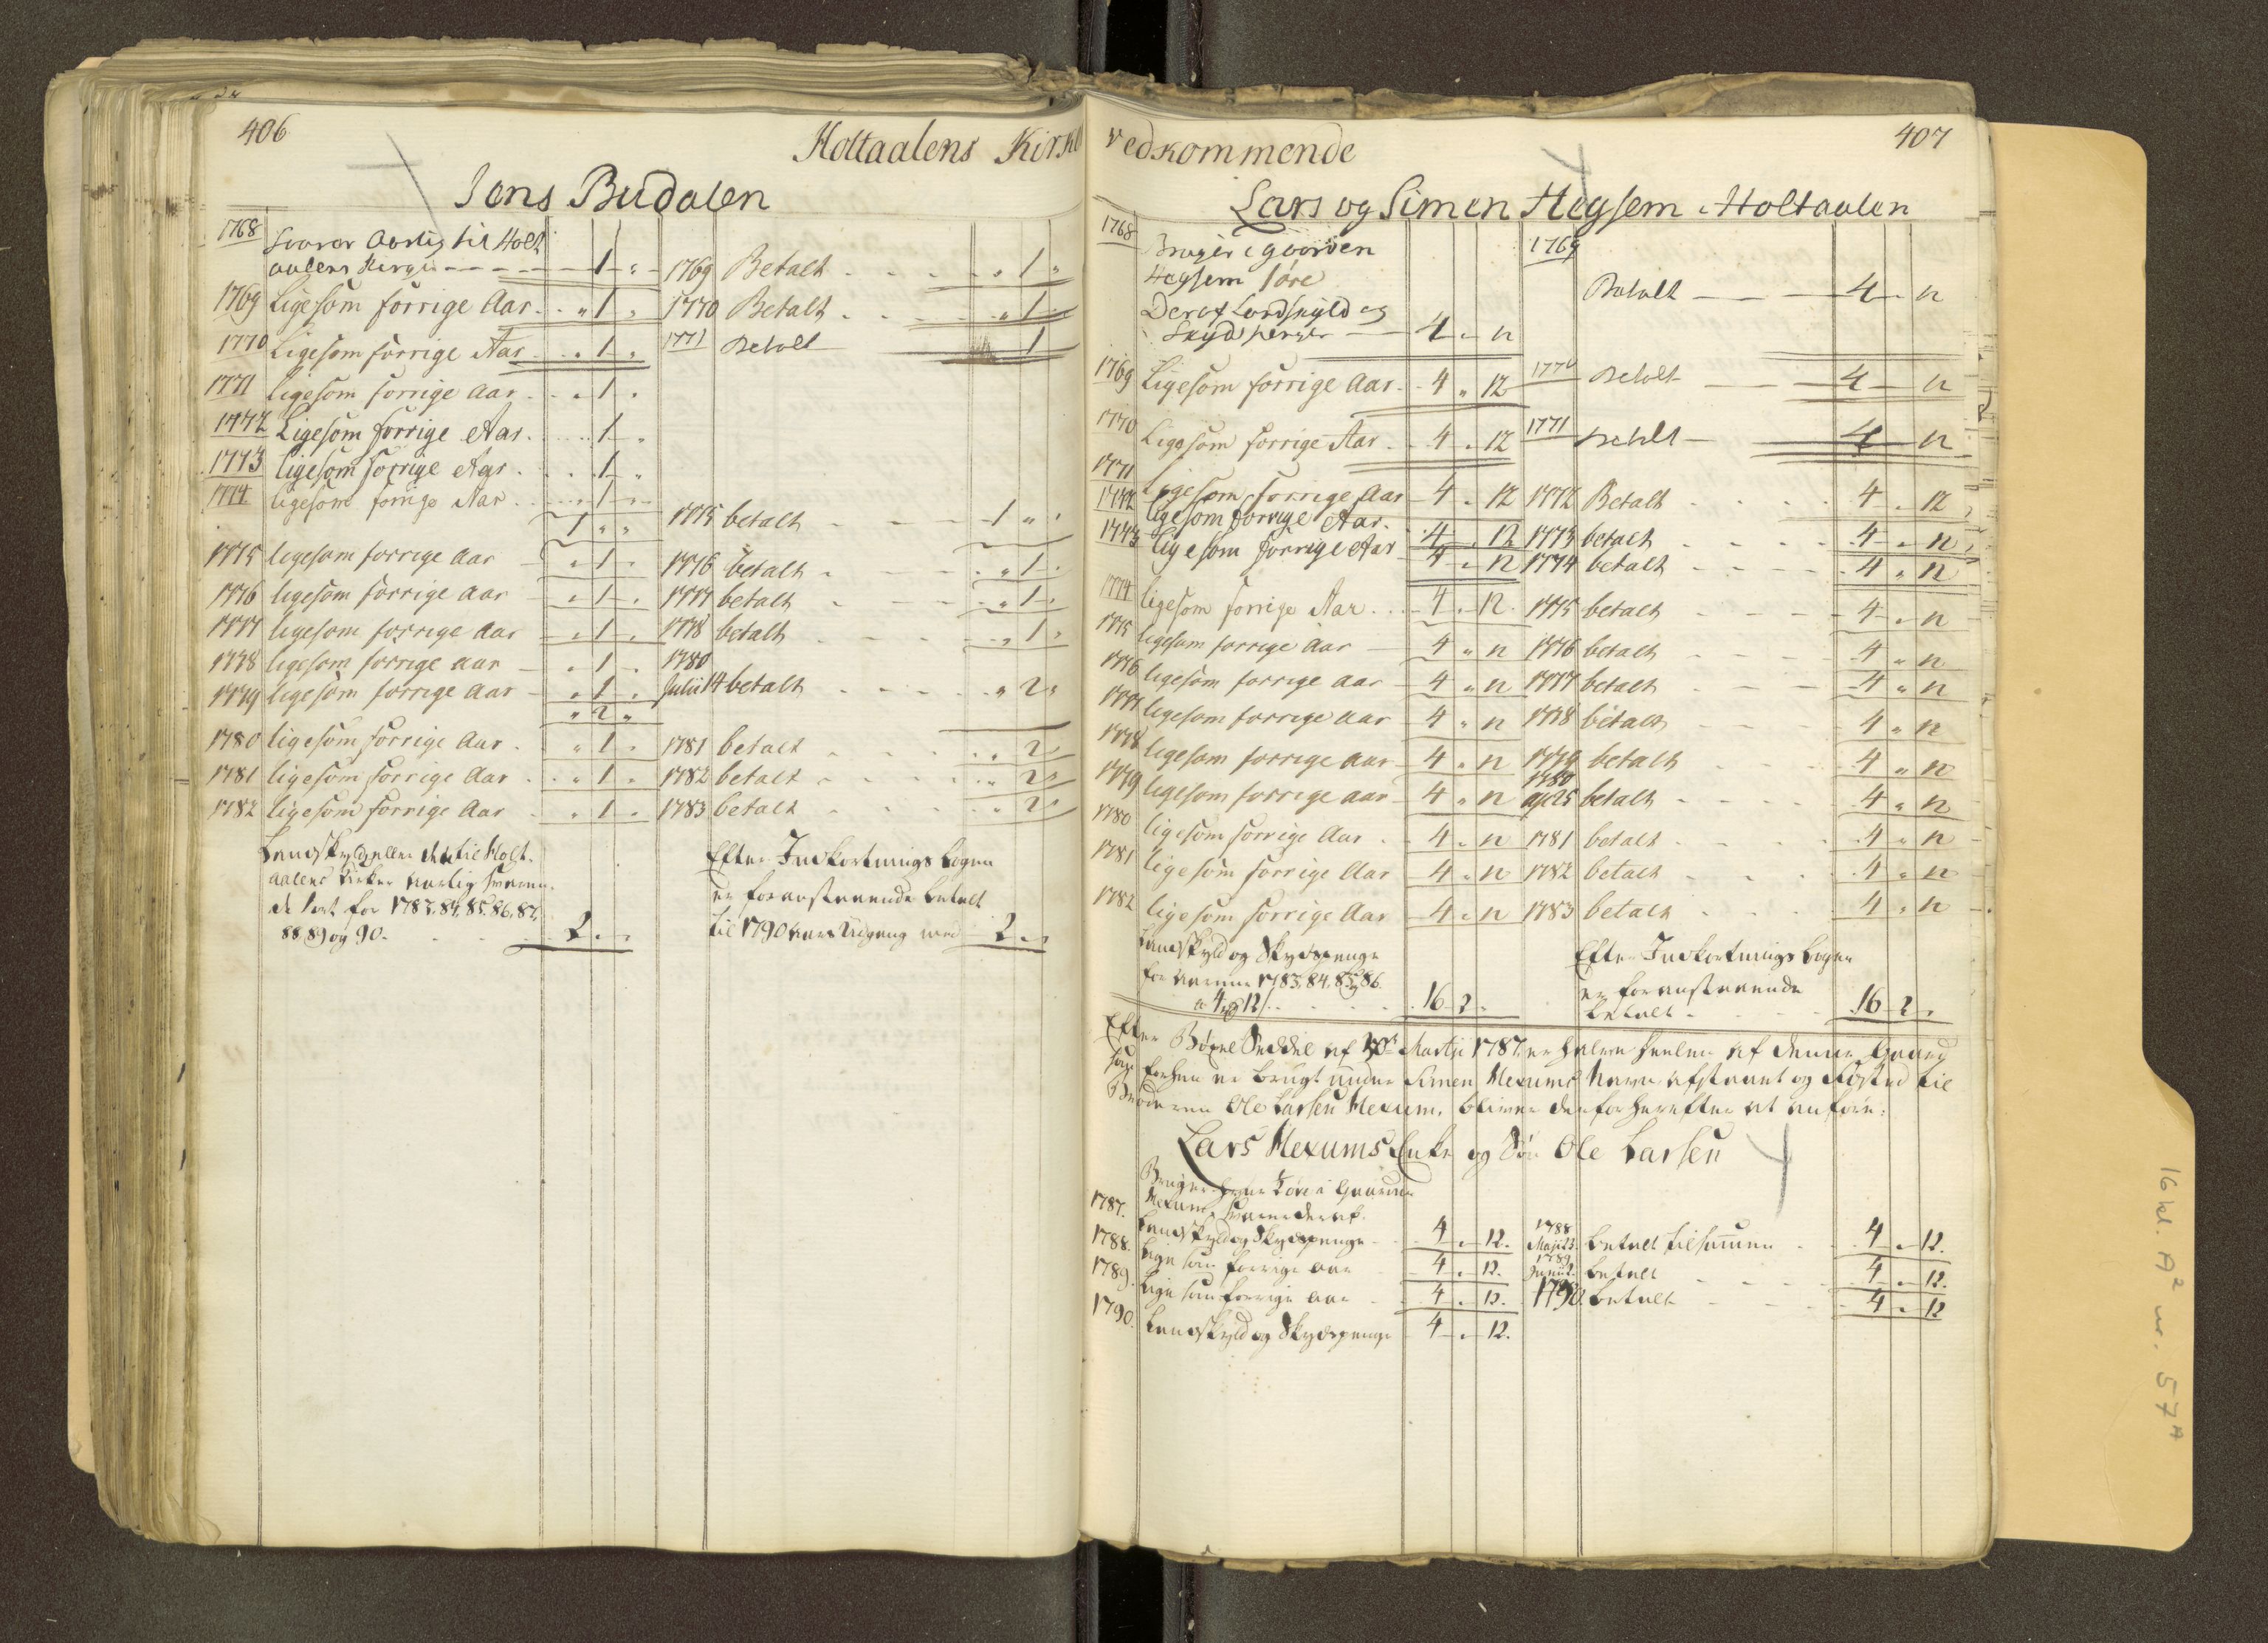 406
Holtaalens Kirke
Jens Budalen
1768 Svarer Aarlig til Holt
aalens Kirge 1 "
1769 Betalt " 1 "
1769 Ligesom forrige Aar " 1 "
1770 Betalt " 1
1770 Ligesom forrige Aar " 1 "
1771 Betalt 1
1771 ligesom forrige Aar " 1 "
1772 Ligesom forrige Aar 1 "
1773 ligesom forrige Aar 1 "
1774 ligesom forrige Aar 1 "
1 " "
1775 betalt 1 " "
1775 ligesom forrige Aar " 1 "
1776 betalt " 1 "
1776 ligesom forrige Aar " 1 "
1777 betalt " 1 "
1777 ligesom forrige Aar " 1 "
1778 betalt " 1 "
1778 ligesom forrige aar " 1 "
1779 ligesom forrige Aar " 1 "
" 2 "
1780
Julii 14 betalt " 2 "
1780 ligesom forrige Aar " 1 "
1781 betalt " 2 "
1781 ligesom forrige Aar " 1 "
1782 betalt " 2 "
1782 ligesom forrige Aar " 1 "
1783 betalt " 2 "
Landskyld eller det til Holt-
aalens Kirke aarlig svarende
for 1783. 84. 85. 86. 87.
88. 89 og 90. 2 " "
Efter Indkortnings bogen
er foranstaaende betalt
til 1790 aars Udgang med 2 " "
vedkommende
407
Lars og Simen Hegsem i Holtaalen
1768 Bruger i gaarden
Hegsem 1 øre
Deraf Landskyld og
Skydspenger 4 " 12
1769
Betalt 4 " 12
1769 Ligesom forrige Aar 4 " 12
1770 Betalt 4 12
1770 Ligesom forrige Aar 4 " 12
1771 betalt 4 12
1771 Ligesom forrige Aar 4 " 12
1772 Betalt 4 " 12
1772 ligesom forrige Aar 4 " 12
1773 betalt 4 " 12
1773 ligesom forrige Aar 4 " 12
1774 betalt 4 " 12
1774 ligesom forrige Aar 4 " 12
1775 betalt 4 " 12
1775 ligesom forrige Aar 4 " 12
1776 betalt 4 " 12
1776 ligesom forrige aar 4 " 12
1777 betalt 4 " 12
1777 ligesom forrige aar 4 " 12
1778 betalt 4 " 12
1778 ligesom forrige aar 4 " 12
1779 betalt 4 " 12
1779 ligesom forrige aar 4 " 12
1780
apr 25 betalt 4 " 12
1780 ligesom forrige Aar 4 " 12
1781 betalt 4 " 12
1781 ligesom forrige Aar 4 " 12
1782 betalt 4 " 12
1782 ligesom forrige Aar 4 " 12
1783 betalt 4 " 12
Landskyld og Skydspenge
for aarene 1783. 84. 85 og 86.
a 4 12 16 2 "
Efter Indkortnings bogen
er foranstaaende
betalt 16 2 "
Efter Bøxel Seddel af Martii 1787 er halve deelen af denne Gaard
som forhen er brugt under Simen Hexums Navn afstaaet og til
Broderen Ole Larsen Hexum, bliver derfor herefter at anføre:
Lars Hexums Enke og Søn Ole Larsen
Bruger 1 øre i Gaarden
Hexum, svarer deraf.
1787. Landskyld og Skydspenge 4 " 12.
1788
Maji 23. betalt tilsammen 4 " 12.
1788. Lige som forrige aar 4 " 12.
1789
Junii betalt 4 " 12.
1789. Lige som forrige aar 4 " 12.
1790. betalt 4 " 12
1790. Landskyld og Skydspenge 4 " 12.
16 kl. A² nr. 57ᴬ